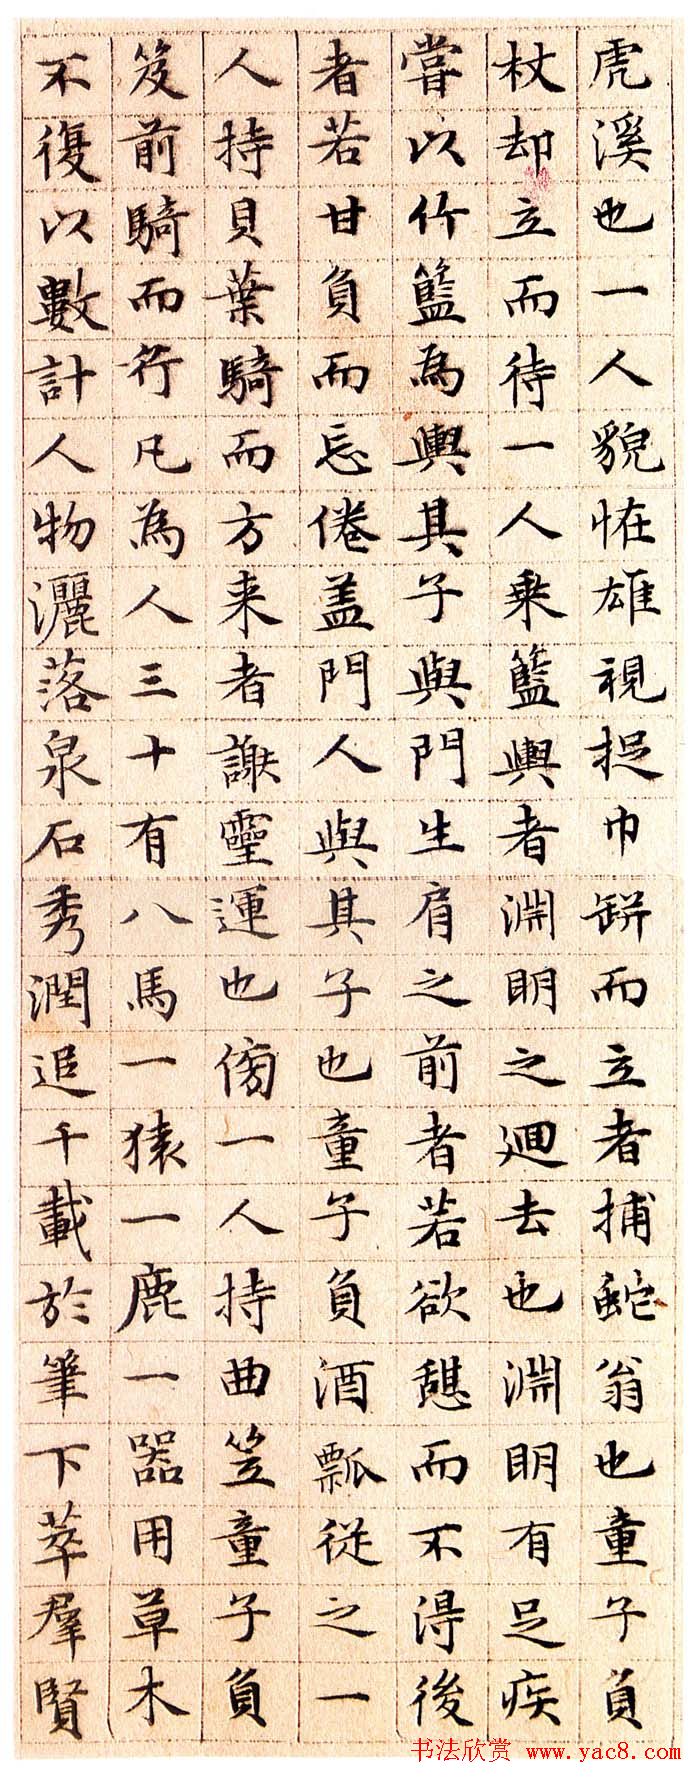 虎溪也一人貌恠雄視捉巾缾而立者捕蛇翁也童子負
杖却立而待一人乗籃輿者淵明之廻去也淵明有足疾
嘗以竹籃為輿其子與門生肩之前者若欲憇而不得後
者若甘負而忘倦盖門人與其子也童子負酒瓢従之一
人持貝葉騎而方来者謝靈運也傍一人持曲笠童子負
笈前騎而行凡為人三十有八馬一猿一鹿一器用草木
不復以數計人物灑落泉石秀潤追千載於筆下萃羣賢
书法欣赏 www.yac8.com